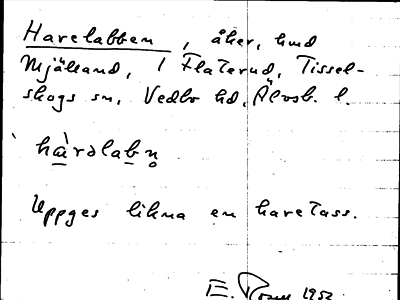 Harelabben, åker, hmd
Mjäland, 1 Flaterud, Tissel-
skogs sn, Vedbo hd, Älvsb. l.
hàrəlabn̥
Uppges likna en haretass.
E. 1952